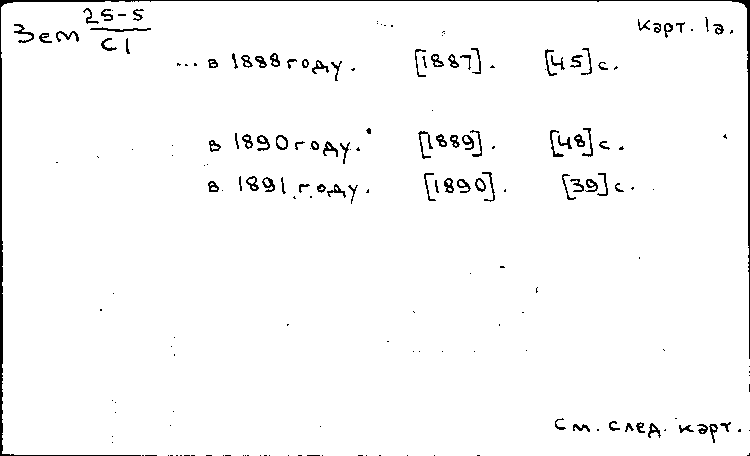 Зем 25-5/С1 карт. 1а.
... в 1888 году. [1887]. [45] с.
в 1890 году. [1889]. [48] с.
в 1891 году. [1890]. [39] с.
См. след. карт.